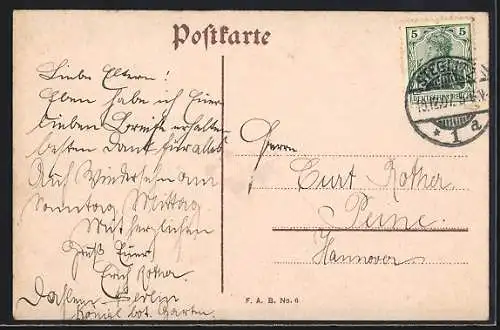 Postkarte
5
Liebe Eltern!
Eben habe ich Euren
lieben Brief erhalten
besten Dank für alles
Auf Wiedersehn am
Sonntag Mittag
Mit herzlichen
Gruß Euer
Erich Rother.
Dahlem-Berlin
Königl. Bot. Garten.
STEGLITZ
* 1 a
Herrn
Curt Rother
Peine
Hannover
F. A. B. No. 6